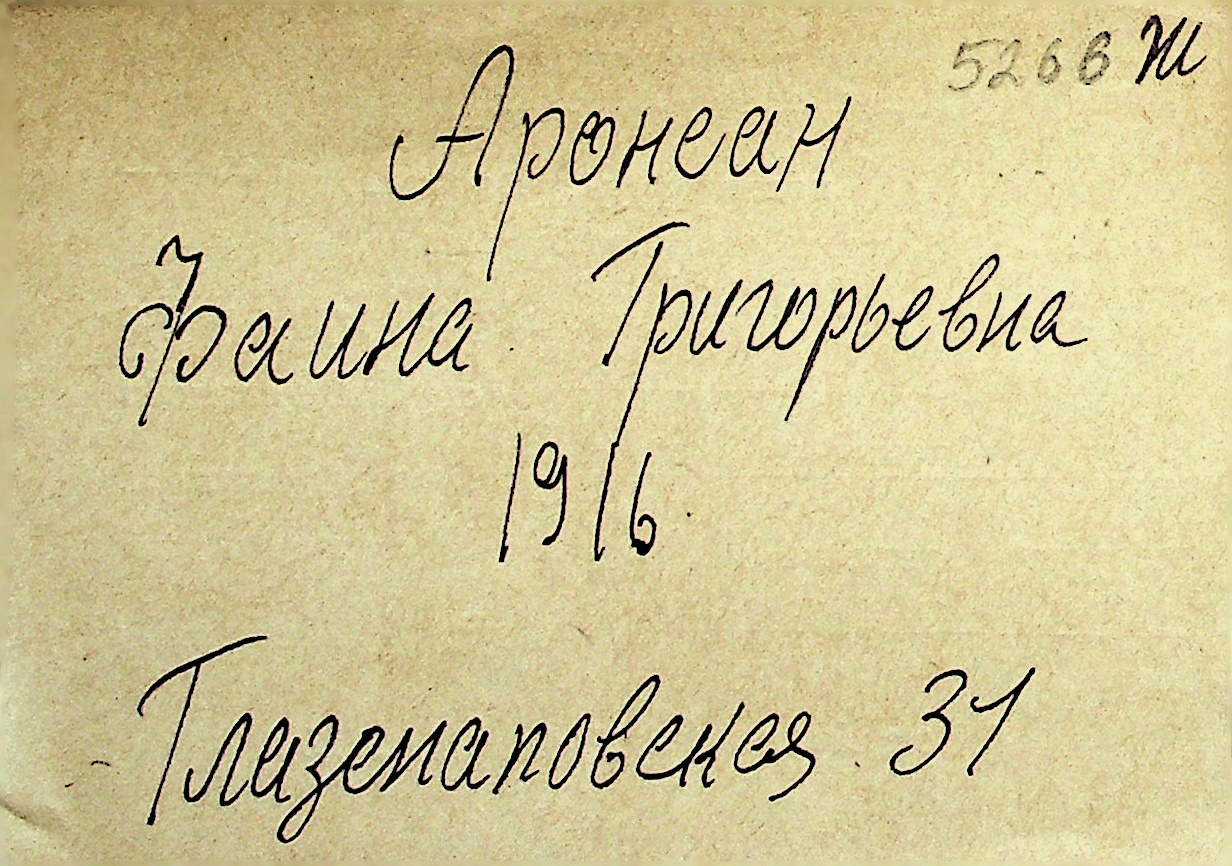 5266 Ж
Аронсан
Фаина Григорьевна
1916
Глазенаповская 31